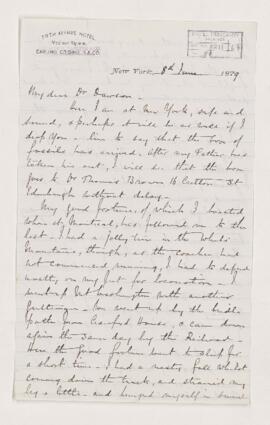 FIFTH AVENUE HOTEL
New York, 8th June 1879
My dear Dr Dawson –
Here I am at New York, safe and
sound, & perhaps it will be as well if I
drop you a line to say that the box of
fossils has arrived. After my Father has
taken his out, I will see that the box
goes to Dr Thomas Brown
Edinburgh without delay.
My good fortune, of which I boasted
when at Montreal, has followed me to the
last. I had a jolly time in the White
Mountains, though, as the coaches had
not commenced running, I had to depend
mostly on my feet for locomotion. I
went up Mt Washington with another
We went up by the bridle
path from Crawford House, & came down
again the same day by the Railroad.
Here the good fortune went to sleep for
a short time. I had a nasty fall whilst
coming down the track, and strained my
leg a little and